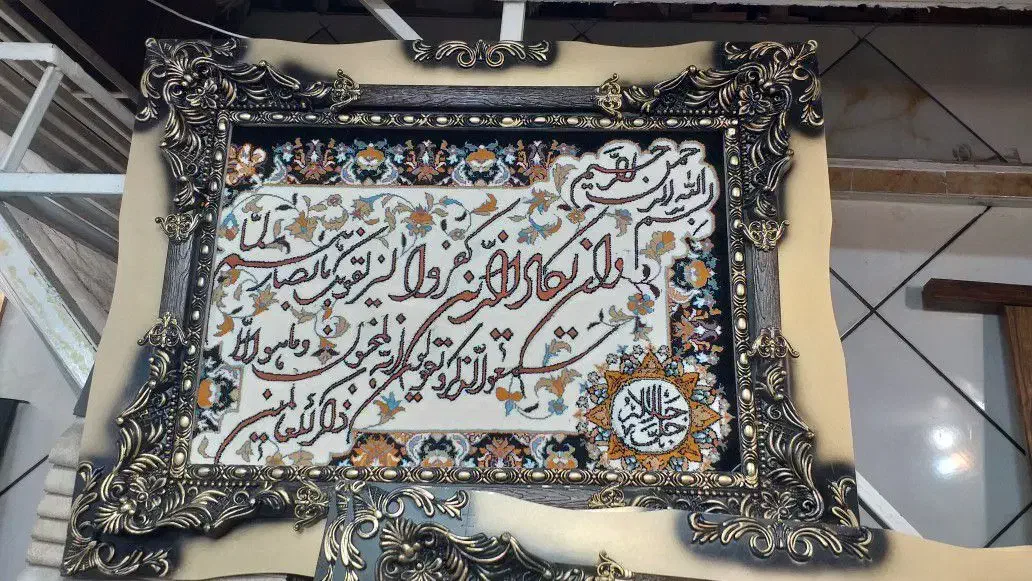 بسم الله الرحمن الرحیم
وان یکاد الذین کفروا لیزلقونک بابصارهم لما
سمعوا الذکر و یقولون انه لمجنون وما هو الا
ذکر للعالمین
الله جل جلاله